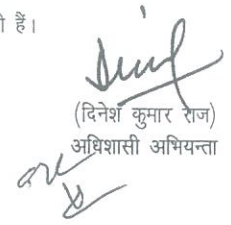 हैं।
(दिनेश कुमार राज)
अधिशासी अभियन्ता